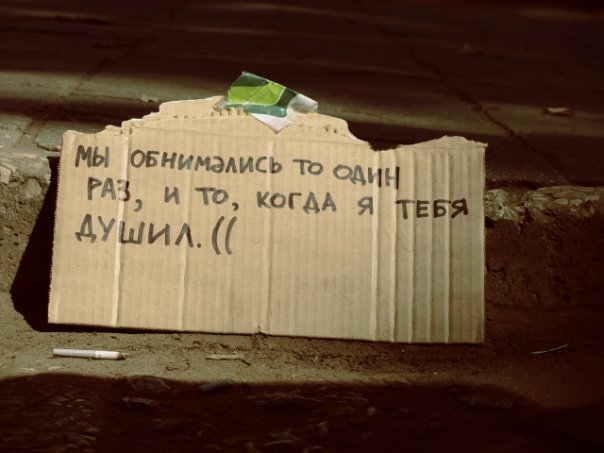 МЫ ОБНИМАЛИСЬ ТО ОДИН
РАЗ, И ТО, КОГДА Я ТЕБЯ
ДУШИЛ. ((